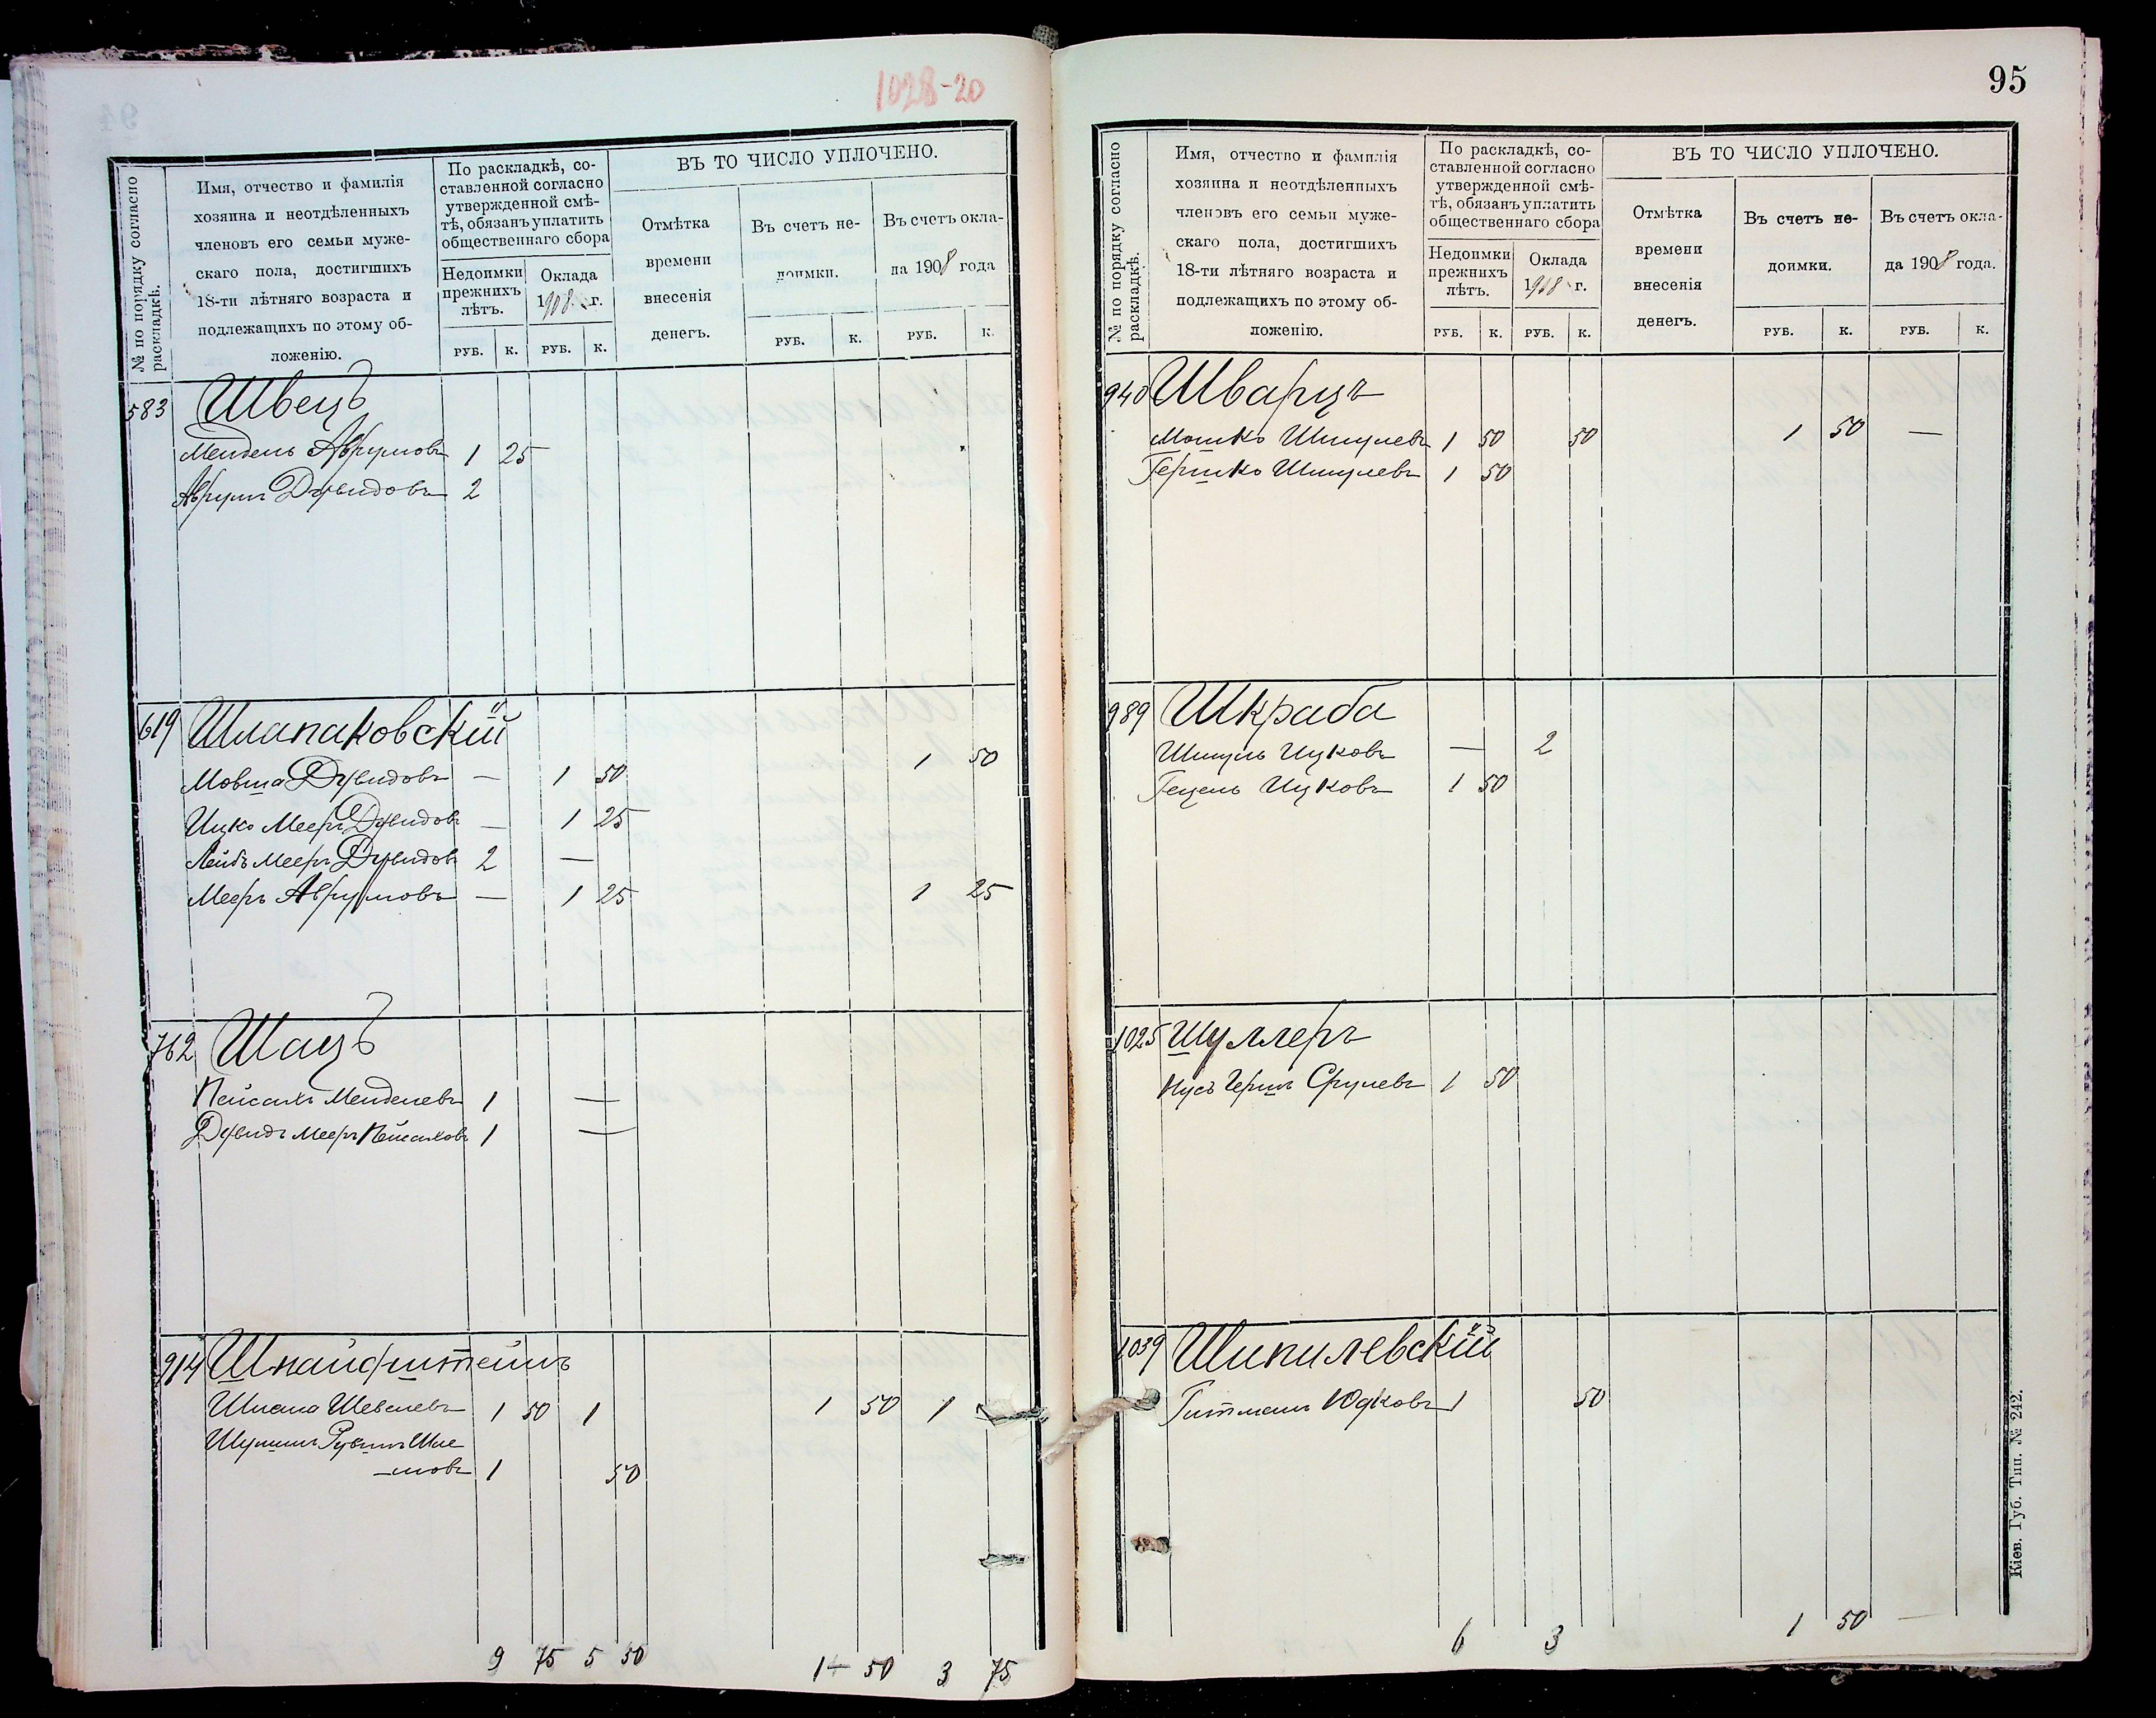 1028-20
№ по порядку согласно раскладкѣ.
Имя, отчество и фамилія
хозяина и неотдѣленныхъ
членовъ его семьи муже-
скаго пола, достигшихъ
18-ти лѣтняго возраста и
подлежащихъ по этому об-
ложенію.
По раскладкѣ, со-
ставленной согласно
утвержденной смѣ-
тѣ, обязанъ уплатить
общественнаго сбора
Недоимки прежнихъ лѣтъ.
Оклада 1908 г.
ВЪ ТО ЧИСЛО УПЛОЧЕНО.
Отмѣтка
времени
внесенія
денегъ.
Въ счетъ не-
доимки.
Въ счетъ окла-
да 1908 года
РУБ. К. РУБ. К. РУБ. К. РУБ. К.
583 Швецъ
Мендель Аврумовъ 1 25
Аврумъ Дувидовъ 2
619 Шлапаковскій
Мовша Дувидовъ — 1 50 1 50
Ицко Мееръ Дувидов — 1 25
Лейбъ Мееръ Дувидов 2 —
Мееръ Аврумовъ — 1 25 1 25
762 Шацъ
Пейсахъ Менделевъ 1 —
Дувидъ Мееръ Пейсаховъ 1 —
914 Шнайдштейнъ
Шлема Шевелевъ 1 50 1 1 50 1
Рувинъ Шле
-мовъ 1 50
9 75 5 50 1 50 3 75
95
№ по порядку согласно раскладкѣ.
Имя, отчество и фамилія
хозяина и неотдѣленныхъ
членовъ его семьи муже-
скаго пола, достигшихъ
18-ти лѣтняго возраста и
подлежащихъ по этому об-
ложенію.
По раскладкѣ, со-
ставленной согласно
утвержденной смѣ-
тѣ, обязанъ уплатить
общественнаго сбора
Недоимки прежнихъ лѣтъ.
Оклада 1908 г.
ВЪ ТО ЧИСЛО УПЛОЧЕНО.
Отмѣтка
времени
внесенія
денегъ.
Въ счетъ не-
доимки.
Въ счетъ окла-
да 1908 года.
РУБ. К. РУБ. К. РУБ. К. РУБ. К.
940 Шварцъ
Мошко Шмулевъ 1 50 50 1 50 —
Гершко Шмулевъ 1 50
989 Шкраба
Шмуль Ицковъ — 2
Гецель Ицковъ 1 50
1025 Шуллеръ
Нусъ Гершъ Срулевъ 1 50
1039 Шипилевскій
Гитманъ Юдковъ 1 50
6 3 1 50 —
Кіев. Губ. Тип. № 242.